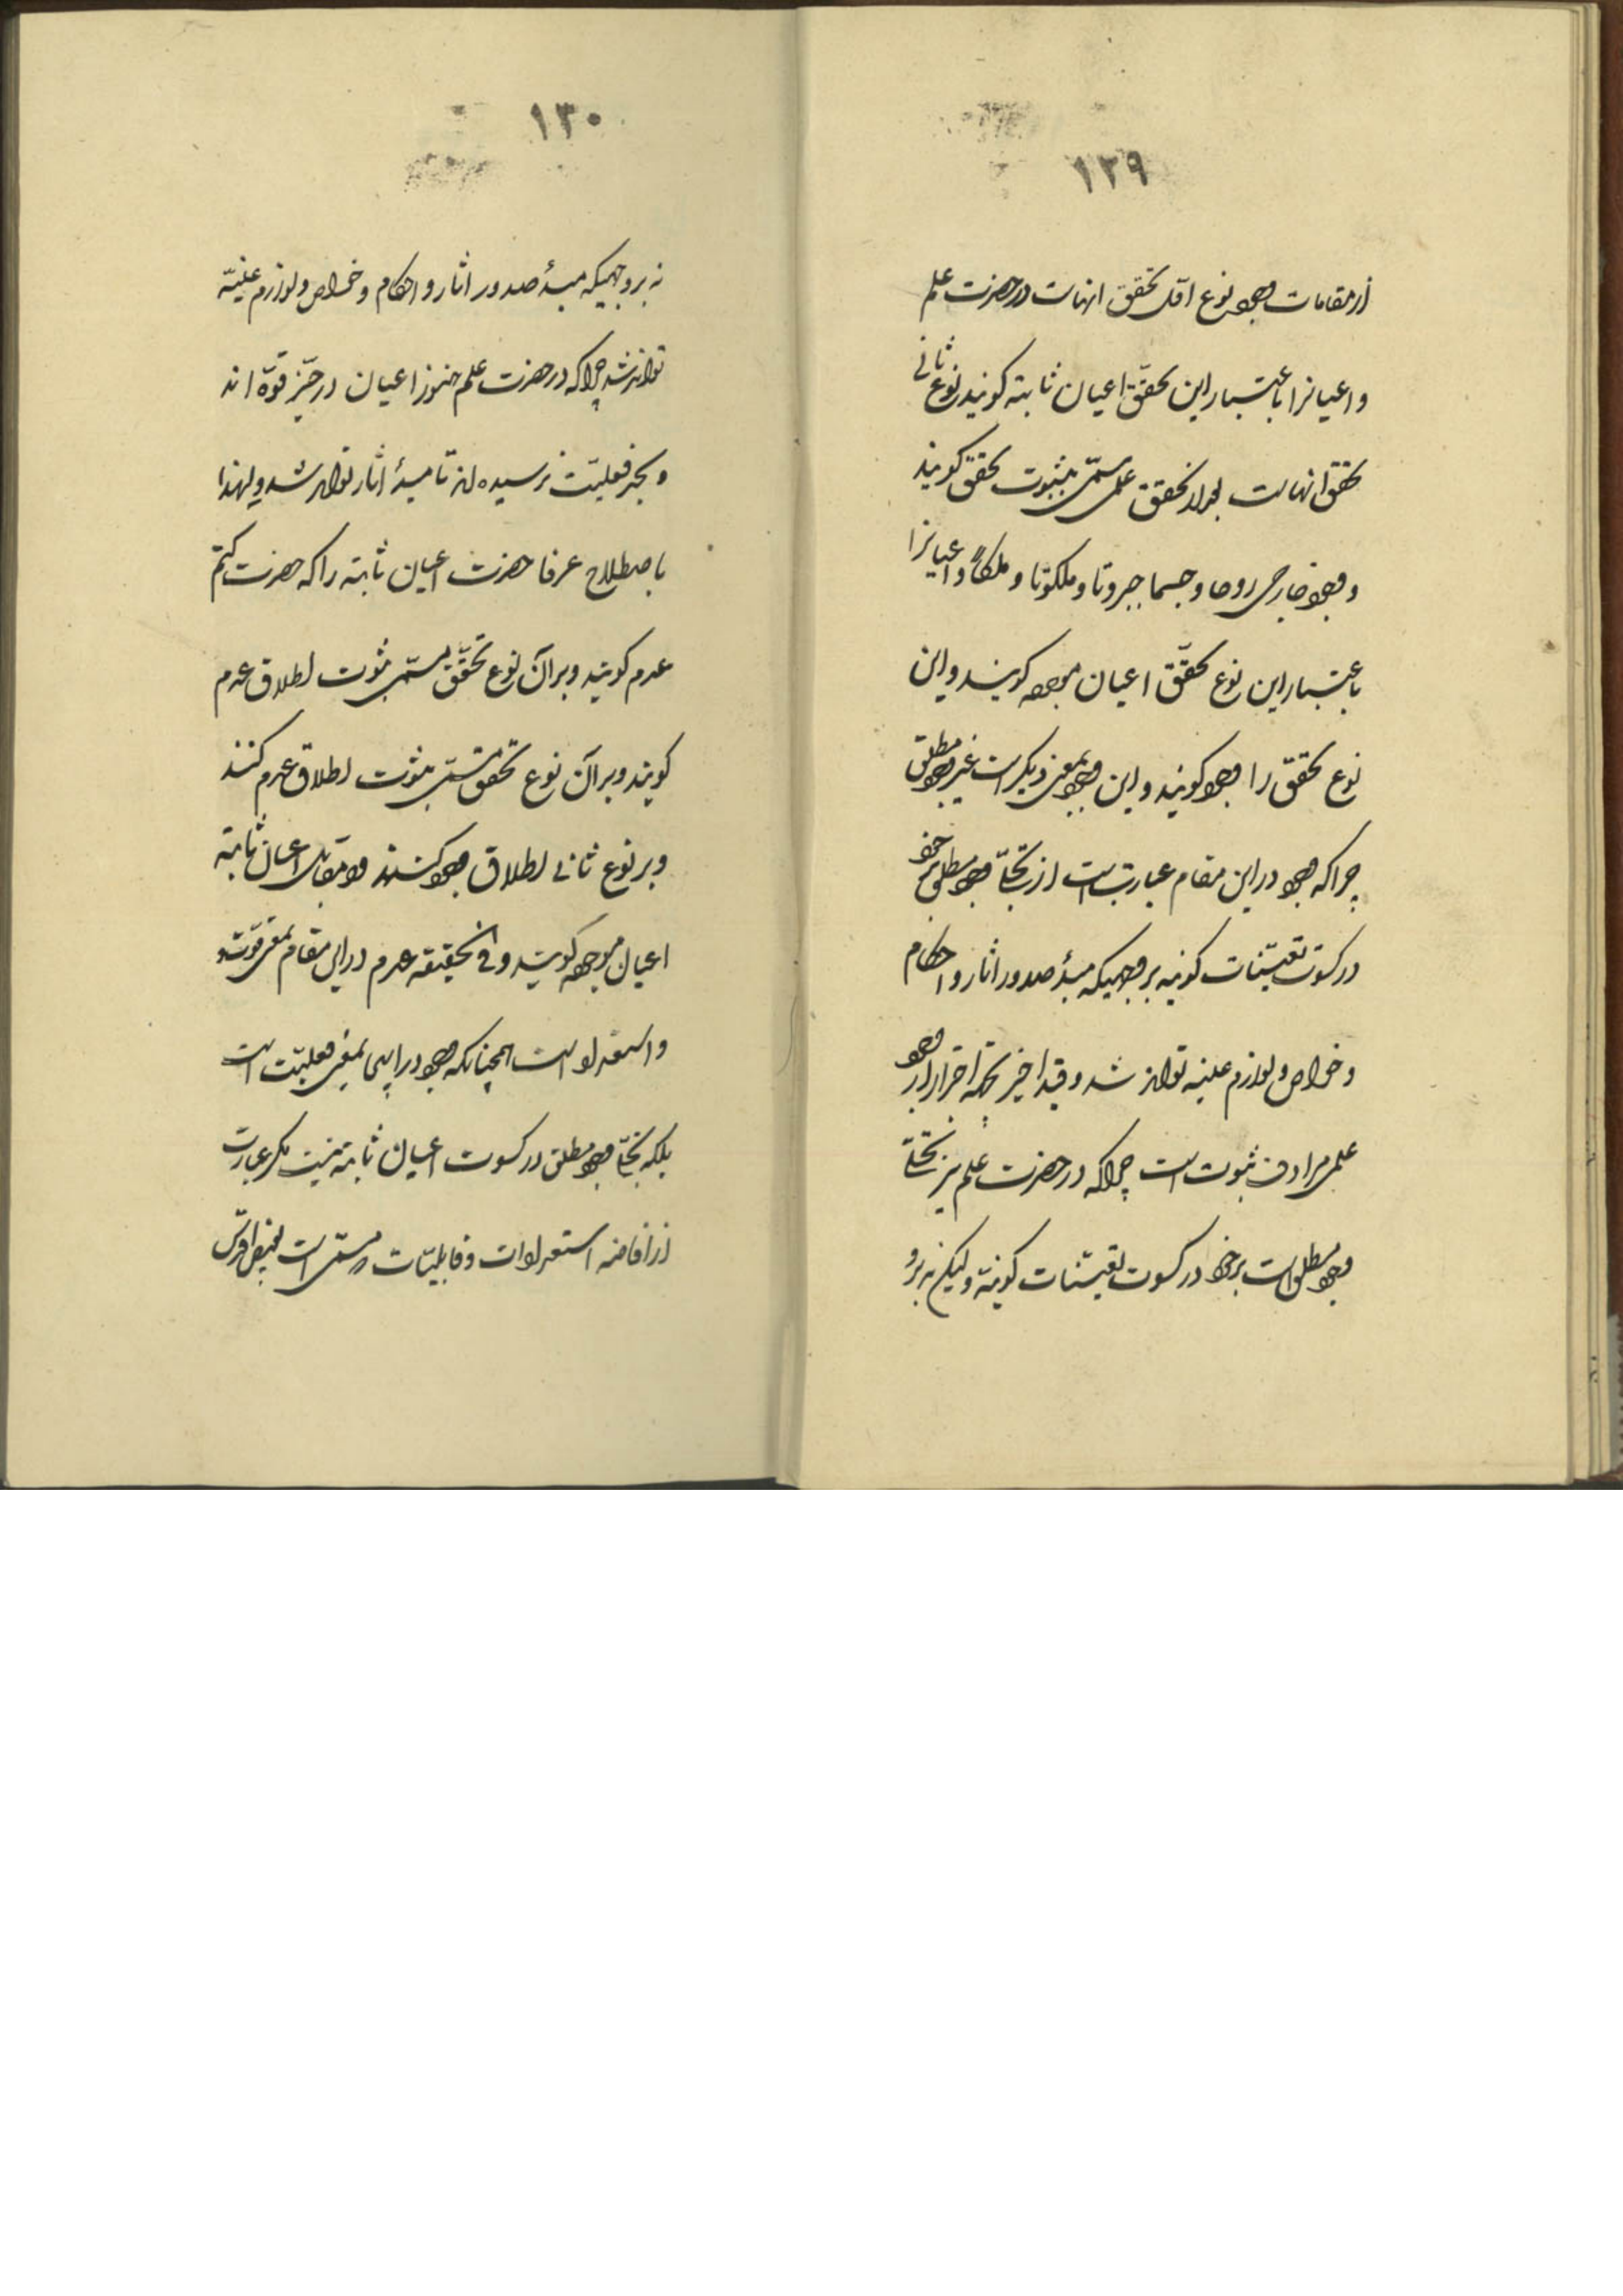 ١٢٩
از مقامات وجود نوع اوّل تحقق انهاست در حضرت علم
و اعیانرا باعتبار این تحقّق اعیان ثابته کویند نوع ثانی
تحقق انهاست بعد از تحقق علمی مسمّی بثبوت تحقق کویند
و وجود خارجی روحا و جسما جبروتا و ملکوتا و ملکاً و اعیانرا
باعتبار این نوع تحقّق اعیان موجوده کویند و این
نوع تحقق را وجود کویند و این وجود بمعنی دیکر است غیر وجود مطلق
چرا که وجود در این مقام عبارتست از تجلّی وجود مطلق بر خود
در کسوت تعیّنات کونیه بر وجهیکه مبدٔ صدور اثار و احکام
و خواص و لوازم عینیه تواند شد و قید اخیر بجهة احتراز از وجود
علمی مرادف ثبوت است چرا که در حضرت علم نیز تجلّی
وجود مطلق است بر خود در کسوت تعیّنات کونیّة ولیکن نه بر و
١٣٠
نه بر وجهیکه مبدٔ صدور اثار و احکام و خواص و لوازم عینیّه
توانند شد چرا که در حضرت علم هنوز اعیان در حیّز قوّه اند
و بحد فعلیّت نرسیده اند تا مبدٔ اثار توانند شد و لهذا
باصطلاح عرفا حضرت اعیان ثابته را که حضرت کتم
عدم کویند و بر آن نوع تحقّق مسمّی بثبوت اطلاق عدم
کویند و بر آن نوع تحقق مسمّی بثبوت اطلاق عدم کنند
و بر نوع ثانی اطلاق وجود کنند و در مقابل اعیان ثابته
اعیان موجوده کویند و فی الحقیقه عدم در این مقام بمعنی قوّت
و استعداد است همچنانکه وجود در اینجا بمعنی فعلیّت است
بلکه تجلّی وجود مطلق در کسوت اعیان ثابته نیست مکر عبارت
از افاضه استعدادات و قابلیّات و مسمّی است بفیض اقدس